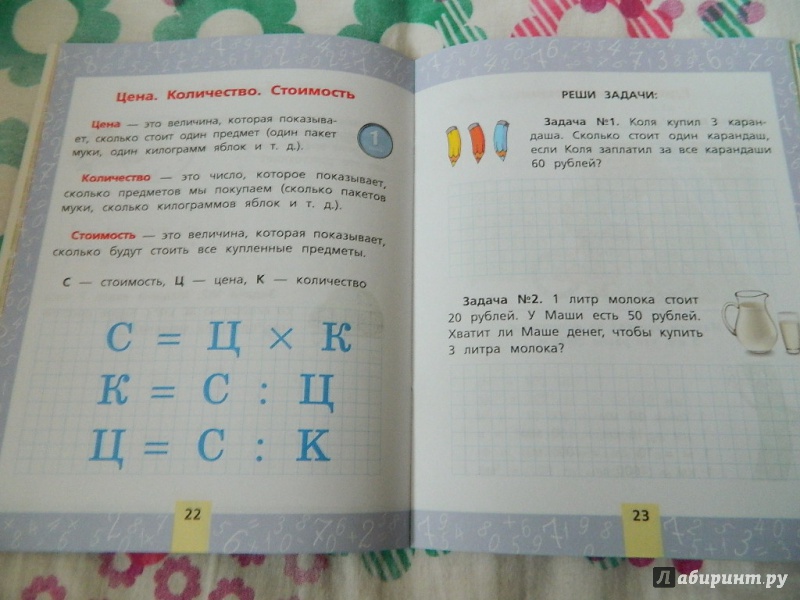 Цена. Количество. Стоимость
Цена — это величина, которая показыва-
ет, сколько стоит один предмет (один пакет
муки, один килограмм яблок и т. д.).
1
Количество — это число, которое показывает,
сколько предметов мы покупаем (сколько пакетов
муки, сколько килограммов яблок и т. д.).
Стоимость — это величина, которая показывает,
сколько будут стоить все купленные предметы.
С — стоимость, Ц — цена, К — количество
С = Ц × К
К = С : Ц
Ц = С : К
22
РЕШИ ЗАДАЧИ:
Задача №1. Коля купил 3 каран-
даша. Сколько стоит один карандаш,
если Коля заплатил за все карандаши
60 рублей?
Задача №2. 1 литр молока стоит
20 рублей. У Маши есть 50 рублей.
Хватит ли Маше денег, чтобы купить
3 литра молока?
23
Лабиринт.ру